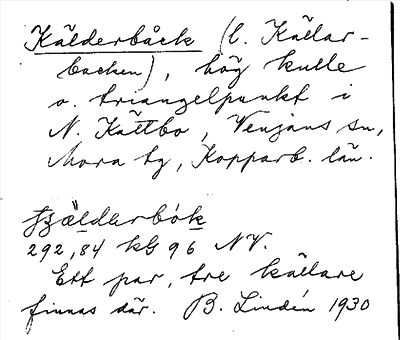 Källderbåck (l. Källar-
backen), hög kulle
o. triangelpunkt i
N. Kättbo, Venjans sn,
Mora tg, Kopparb. län.
292,84 kG 96 NV.
Ett par, tre källare
finnas där. B. Lindén 1930